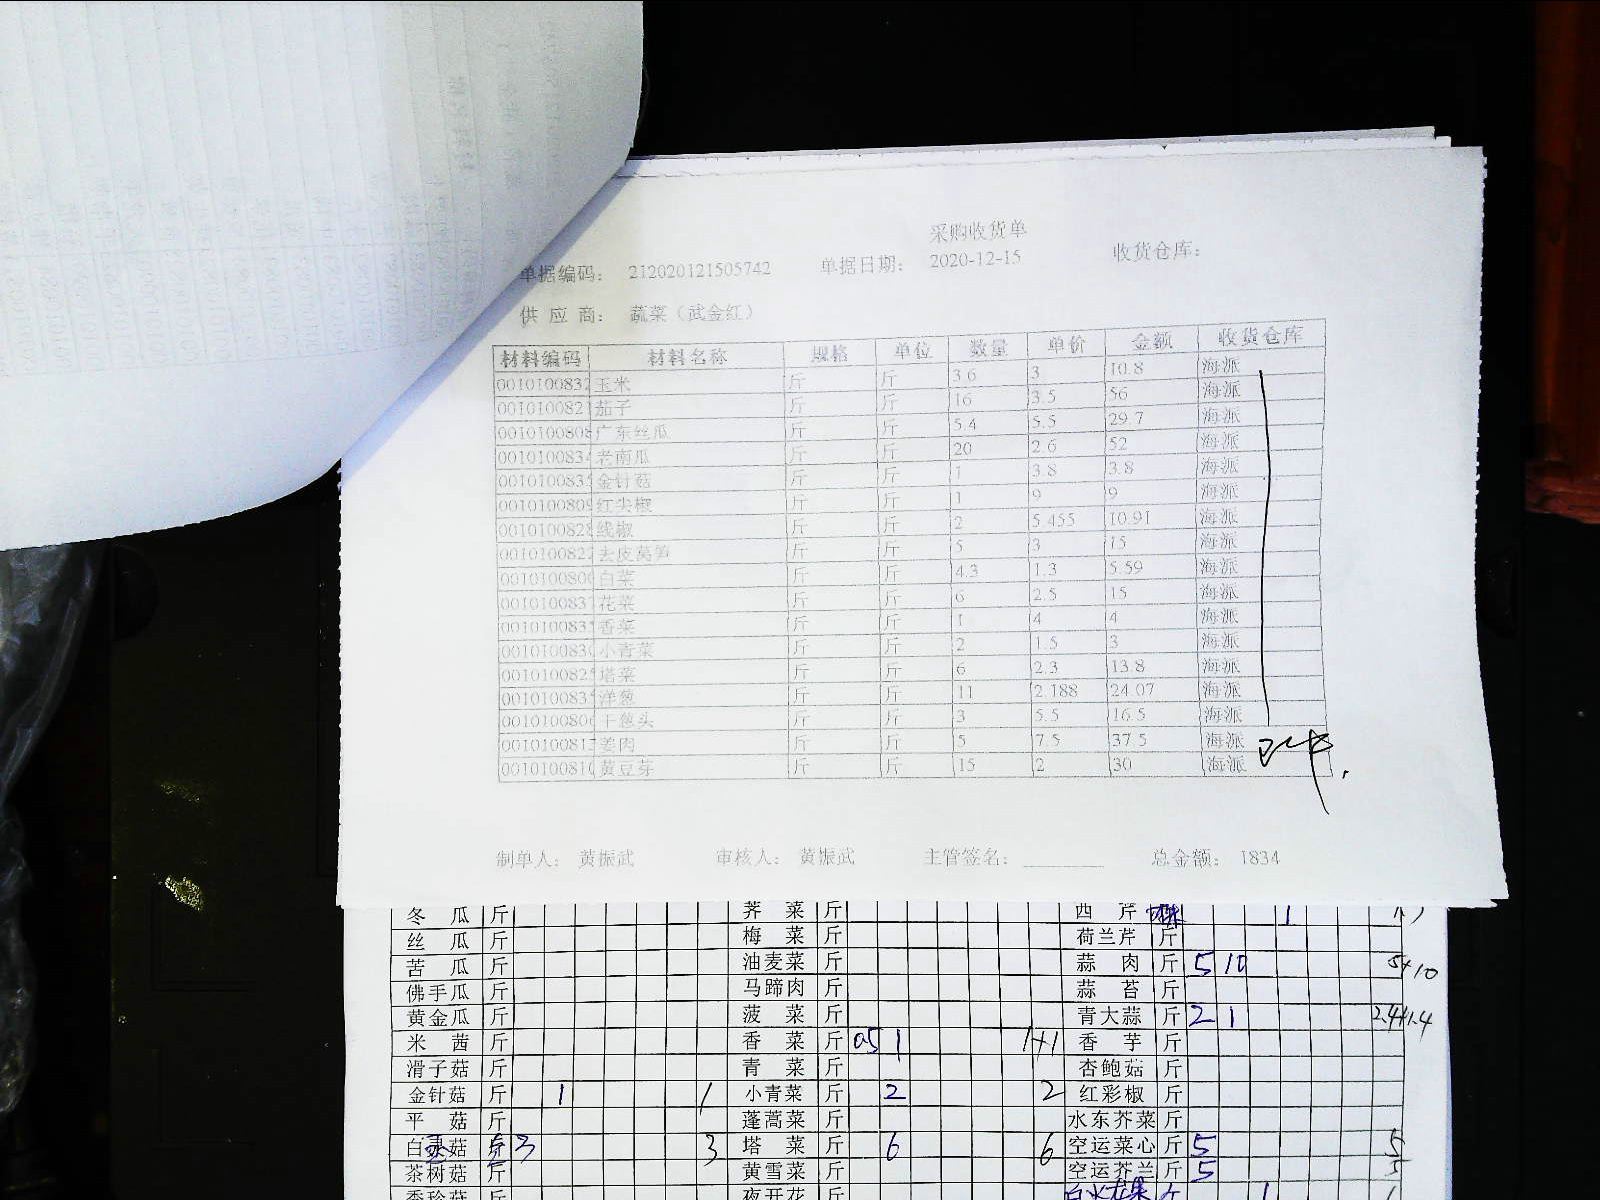 采购收货单
单据编码： 212020121505742 单据日期： 2020-12-15 收货仓库：
供 应 商： 蔬菜（武金红）
材料编码 材料名称 规格 单位 数量 单价 金额 收货仓库
0010100832 玉米 斤 斤 3.6 3 10.8 海派
001010082 茄子 斤 斤 16 3.5 56 海派
0010100808 广东丝瓜 斤 斤 5.4 5.5 29.7 海派
001010083 老南瓜 斤 斤 20 2.6 52 海派
001010083 金针菇 斤 斤 1 3.8 3.8 海派
001010080 红尖椒 斤 斤 1 9 9 海派
001010082 线椒 斤 斤 2 5.455 10.91 海派
001010082 去皮莴笋 斤 斤 5 3 15 海派
001010080 白菜 斤 斤 4.3 1.3 5.59 海派
001010083 花菜 斤 斤 6 2.5 15 海派
001010083 香菜 斤 斤 1 4 4 海派
001010083 小青菜 斤 斤 2 1.5 3 海派
001010082 塔菜 斤 斤 6 2.3 13.8 海派
001010083 洋葱 斤 斤 11 2.188 24.07 海派
001010080 干葱头 斤 斤 3 5.5 16.5 海派
001010081 姜肉 斤 斤 5 7.5 37.5 海派
001010081 黄豆芽 斤 斤 15 2 30 海派
制单人： 黄振武 审核人： 黄振武 主管签名： 总金额： 1834
冬 瓜 斤 荠 菜 斤 西 芹 1
丝 瓜 斤 梅 菜 斤 荷兰芹 斤
苦 瓜 斤 油麦菜 斤 蒜 肉 斤 5 10 5+10
佛手瓜 斤 马蹄肉 斤 蒜 苔 斤
黄金瓜 斤 菠 菜 斤 青大蒜 斤 2 1 2.4+1.4
米 茜 斤 香 菜 斤 0.5 1 1+1 香 芋 斤
滑子菇 斤 青 菜 斤 杏鲍菇 斤
金针菇 斤 1 1 小青菜 斤 2 2 红彩椒 斤
平 菇 斤 蓬蒿菜 斤 水东芥菜 斤
白灵菇 斤 3 3 塔 菜 斤 6 6 空运菜心 斤 5 5
茶树菇 斤 黄雪菜 斤 空运芥兰 斤 5 5
夜开花 斤 1